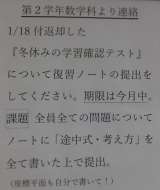 第2学年数学科より連絡
1/18付返却した
『冬休みの学習確認テスト』
について復習ノートの提出を
してください。期限は今月中。
課題 全員全ての問題について
ノートに「途中式・考え方」を
全て書いた上で提出。
(座標平面も自分で書いて!)